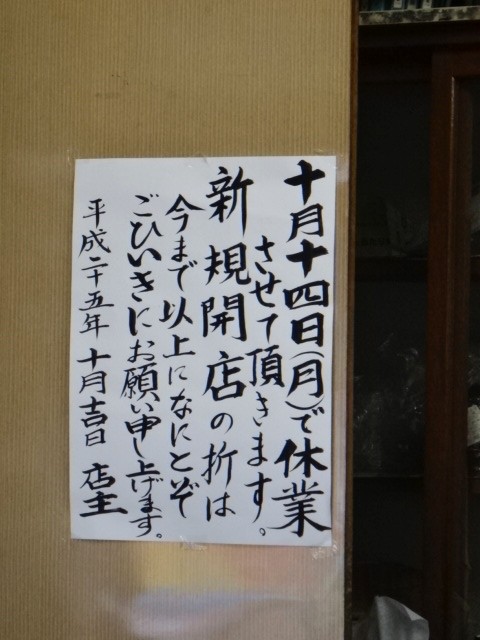 十月十四日(月)で休業
させて頂きます。
新規開店の折は
今まで以上になにとぞ
ごひいきにお願い申し上げます。
平成二十五年 十月吉日 店主